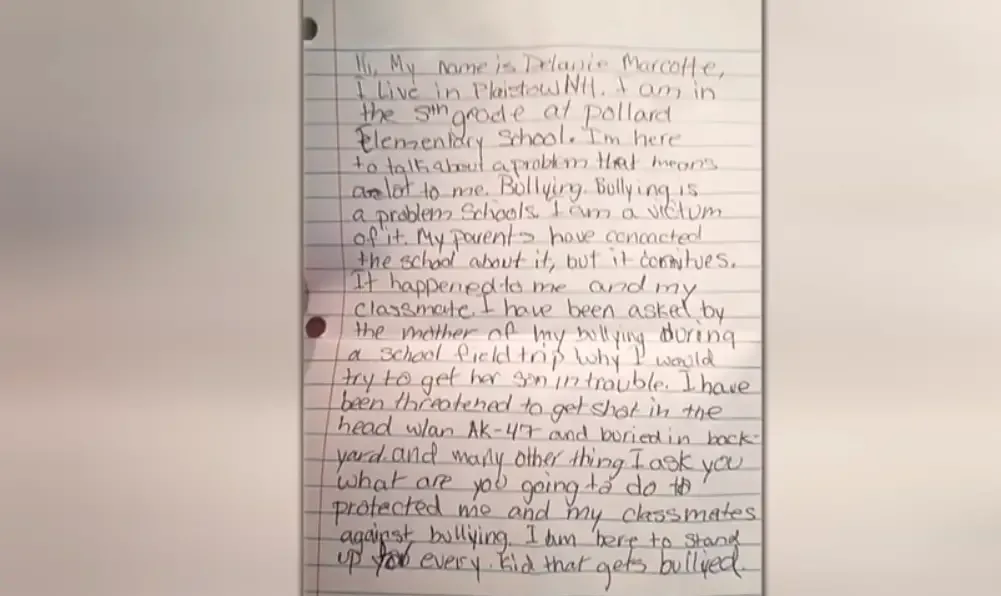 Hi, My name is Delanie Marcotte,
I Live in Plaistow NH. I am in
the 5th grade at pollard
Elementary School. I'm here
to talk about a problem that means
a lot to me. Bullying. Bullying is
a problem Schools. I am a victum
of it. My parents have conacted
the school about it, but it
It happened to me and my
classmate. I have been asked by
the mother of my bullying during
a school field trip why I would
try to get her son in trouble. I have
been threatened to get shot in the
head w/an AK-47 and buried in back-
yard and many other thing I ask you
what are you going to do to
protected me and my classmates
against bullying. I am here to stand
up every kid that gets bullyed.